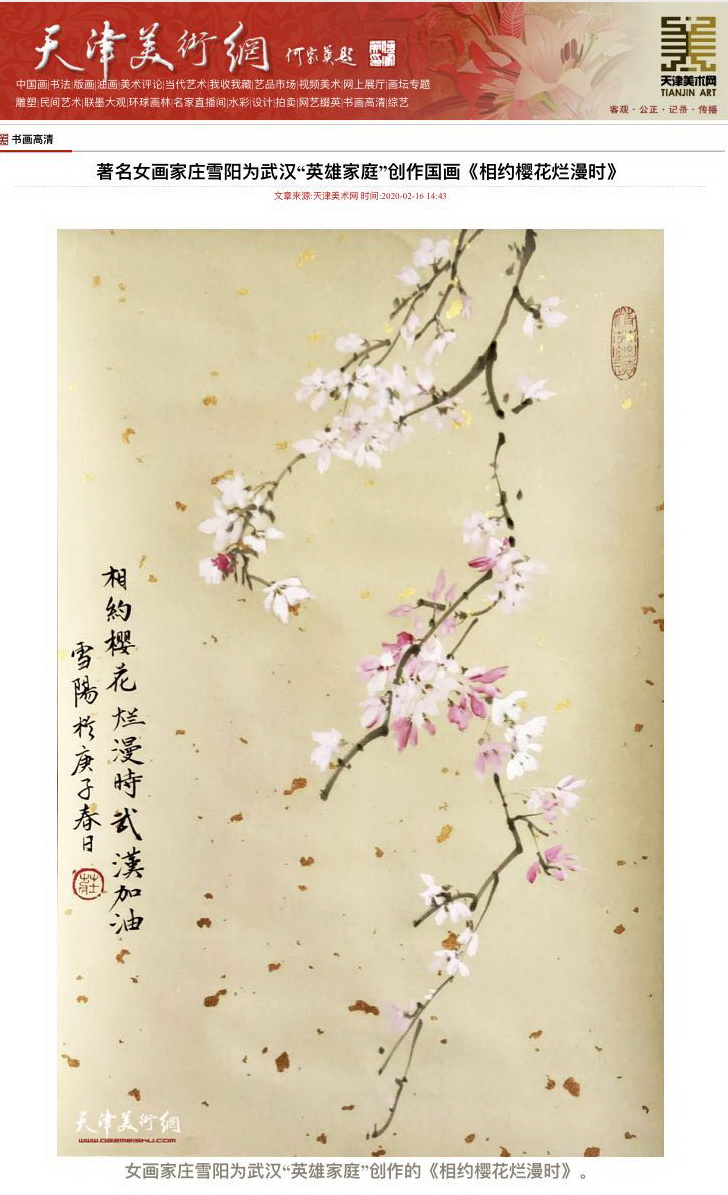 天津美術網
何家英題
天津美术网
TIANJIN ART
客观·公正·记录·传播
中国画|书法|版画|油画|美术评论|当代艺术|我收我藏|艺品市场|视频美术|网上展厅|画坛专题
雕塑|民间艺术|联墨大观|环球画林|名家直播间|水彩|设计|拍卖|网艺缀英|书画高清|综艺
书画高清
著名女画家庄雪阳为武汉“英雄家庭”创作国画《相约樱花烂漫时》
文章来源:天津美术网 时间:2020-02-16 14:43
相約樱花烂漫時武漢加油
雪陽於庚子春日
莊
天津美術網
www.022meishu.com
女画家庄雪阳为武汉“英雄家庭”创作的《相约樱花烂漫时》。